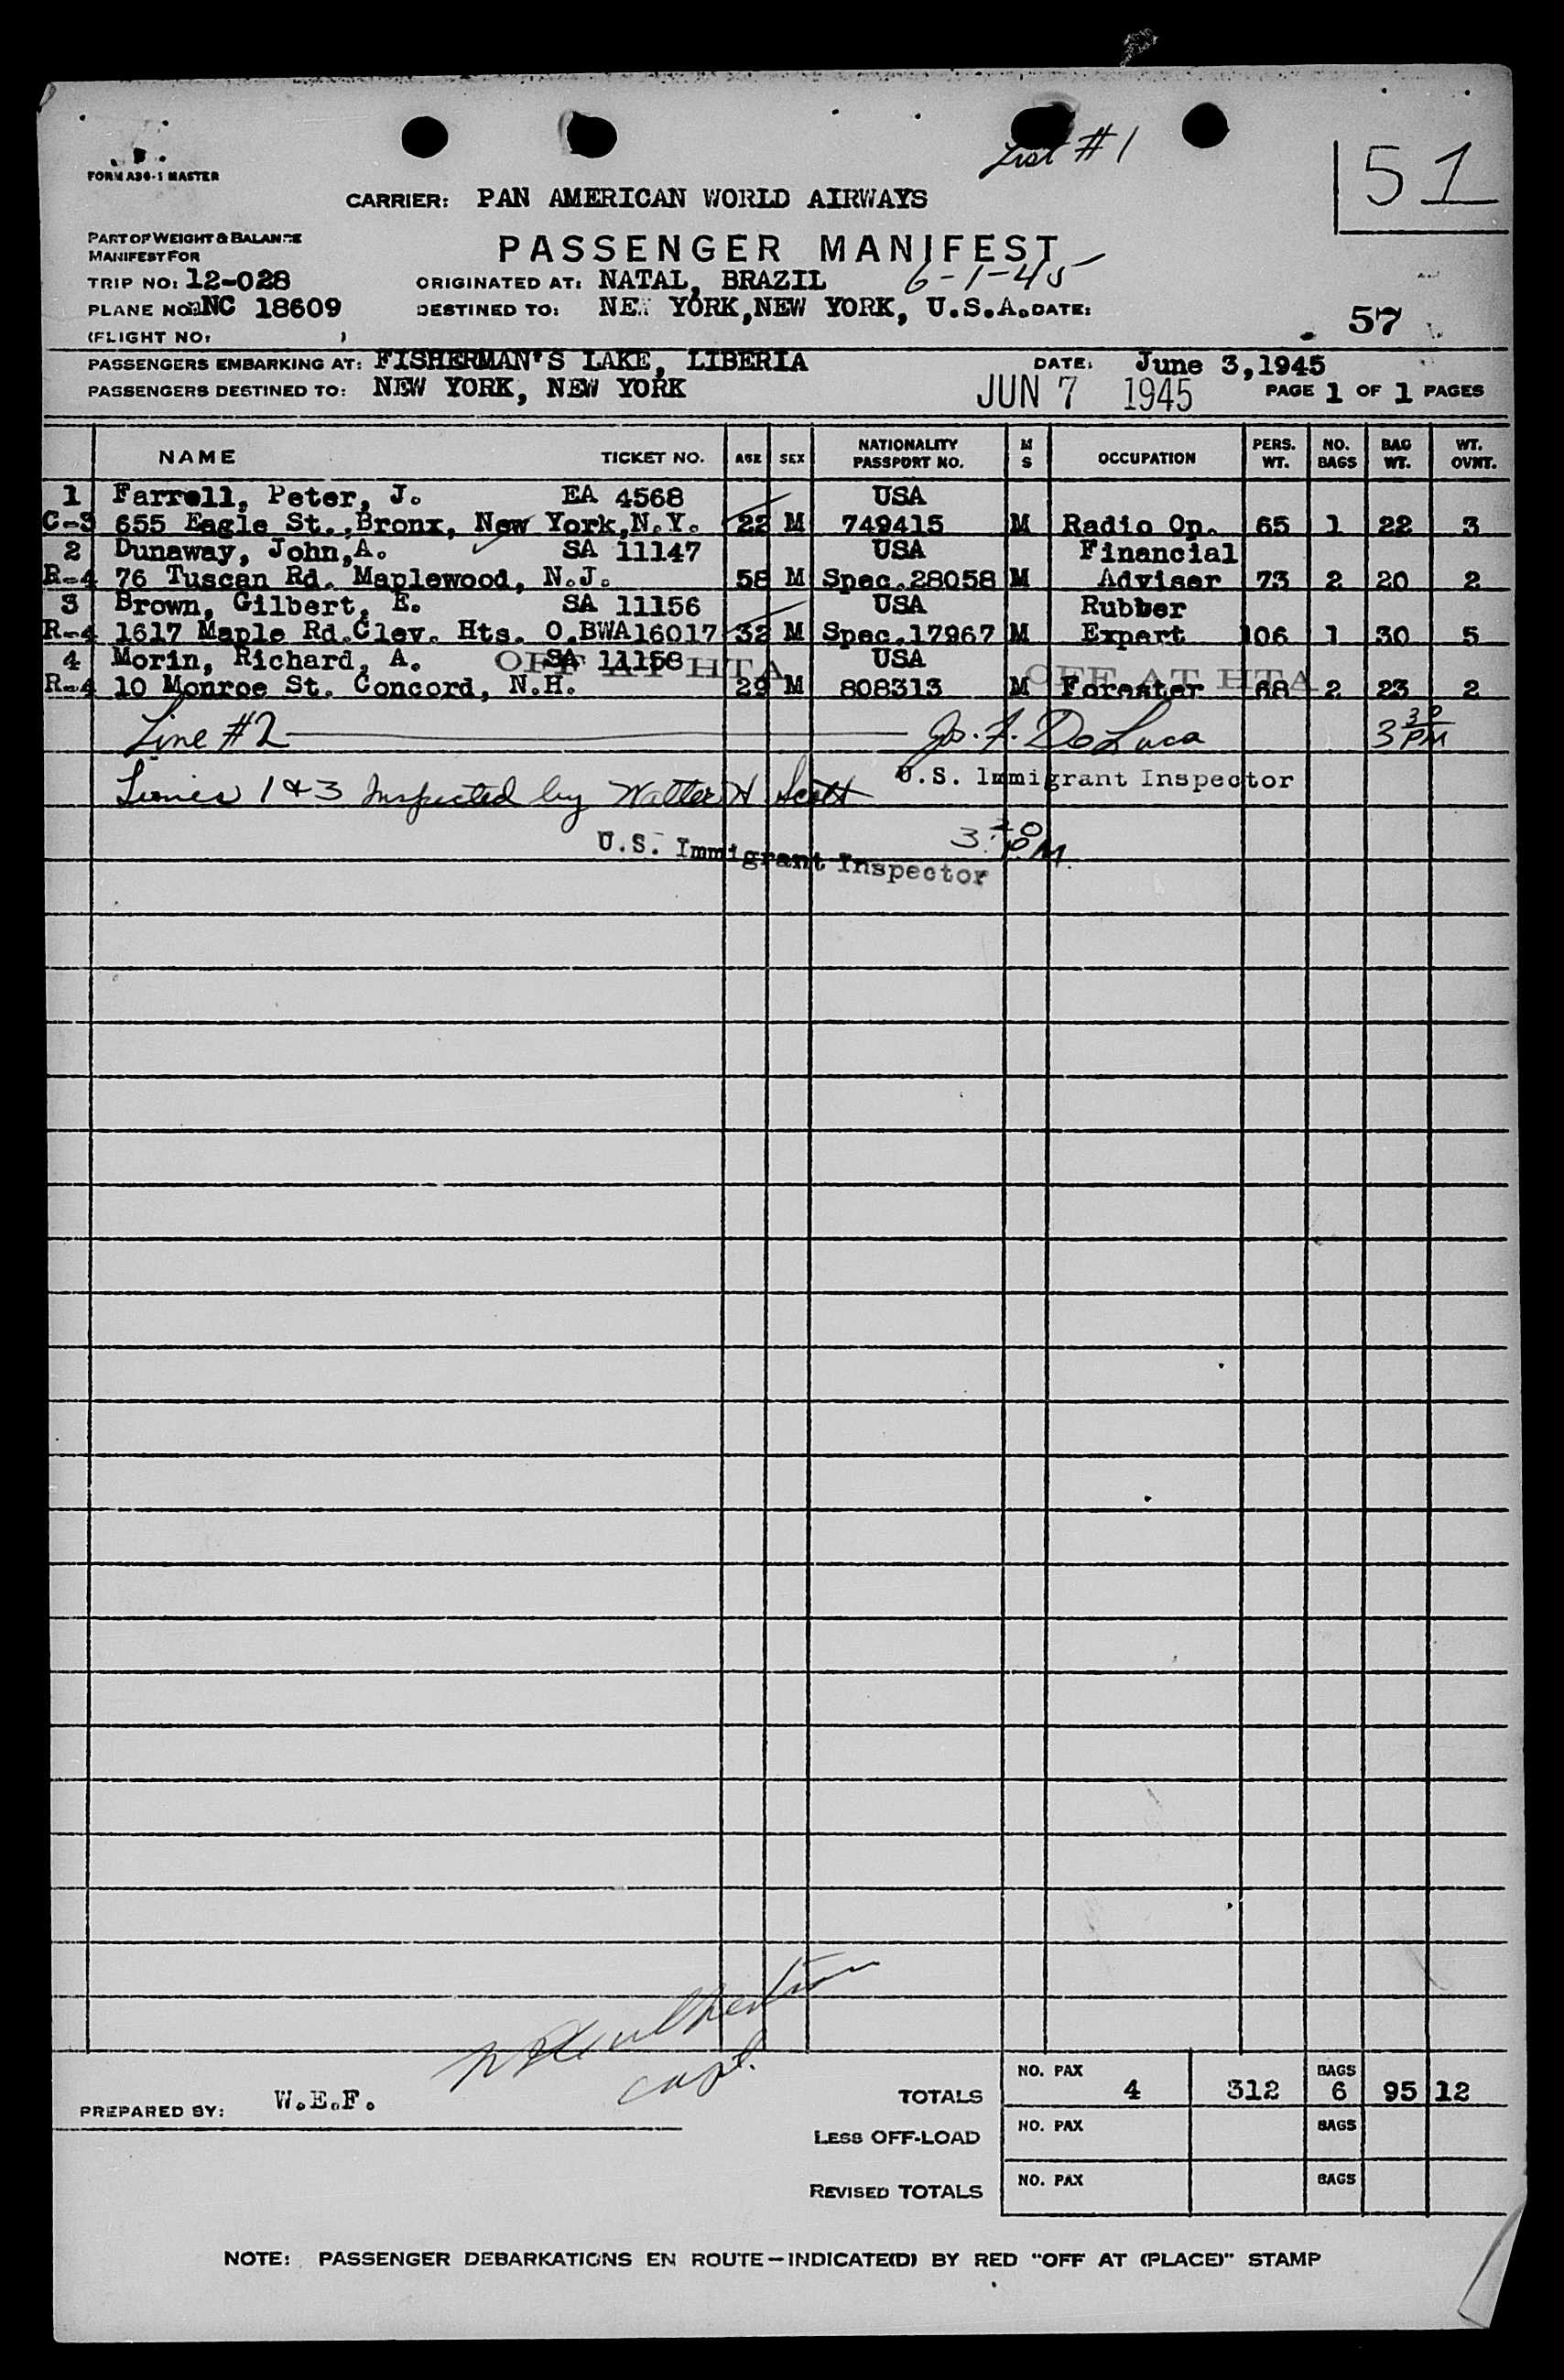 List #1
51
FORM A36-1 MASTER
CARRIER: PAN AMERICAN WORLD AIRWAYS
PART OF WEIGHT & BALANCE
MANIFEST FOR
PASSENGER MANIFEST
TRIP NO: 12-028 ORIGINATED AT: NATAL, BRAZIL 6-1-45
PLANE NO: NC 18609 DESTINED TO: NEW YORK, NEW YORK, U.S.A. DATE:
57
(FLIGHT NO: )
PASSENGERS EMBARKING AT: FISHERMAN'S LAKE, LIBERIA DATE: June 3,1945
PASSENGERS DESTINED TO: NEW YORK, NEW YORK JUN 7 1945 PAGE 1 OF 1 PAGES
NAME TICKET NO. AGE SEX NATIONALITY PASSPORT NO. M S OCCUPATION PERS. WT. NO. BAGS BAG WT. WT. OVNT.
1 Farrell, Peter, J. EA 4568 USA
C-3 655 Eagle St., Bronx, New York,N.Y. 22 M 749415 M Radio Op. 65 1 22 3
2 Dunaway, John,A. SA 11147 USA Financial
R-4 76 Tuscan Rd. Maplewood, N.J. 58 M Spec.28058 M Adviser 73 2 20 2
3 Brown, Gilbert, E. SA 11156 USA Rubber
R-4 1617 Maple Rd.Clev. Hts. O.BWA16017 32 M Spec.17967 M Expert 106 1 30 5
4 Morin, Richard, A. SA 11158 USA
OFF AT HTA OFF AT HTA
R-4 10 Monroe St. Concord, N.H. 29 M 808313 M Forester 68 2 23 2
Line #2 Jos. F. DeLuca 3 30 PM
U.S. Immigrant Inspector
Lines 1 & 3 Inspected by Walter H Scott
3:20 P.M.
U.S. Immigrant Inspector
Capt.
PREPARED BY: W.E.F.
TOTALS NO. PAX 4 312 BAGS 6 95 12
LESS OFF-LOAD NO. PAX BAGS
REVISED TOTALS NO. PAX BAGS
NOTE: PASSENGER DEBARKATIONS EN ROUTE—INDICATE(D) BY RED "OFF AT (PLACE)" STAMP